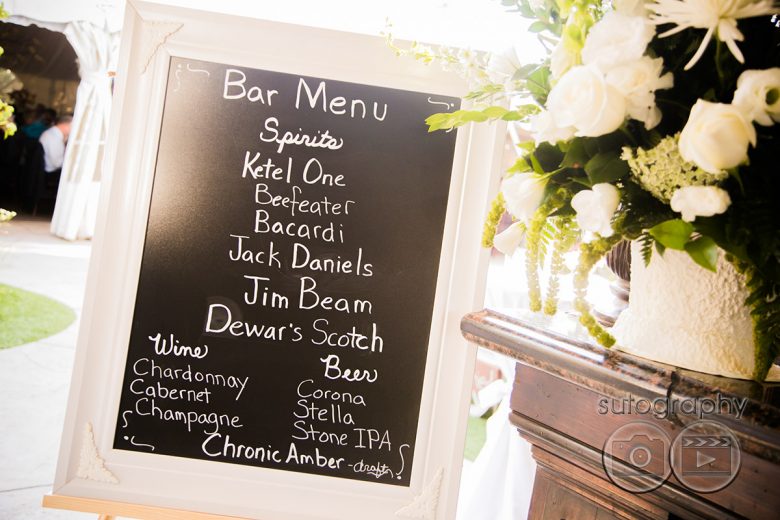 Bar Menu
Spirits
Ketel One
Beefeater
Bacardi
Jack Daniels
Jim Beam
Dewar's Scotch
Wine
Chardonnay
Cabernet
Champagne
Beer
Corona
Stella
Stone IPA
Chronic Amber - draft
sutography